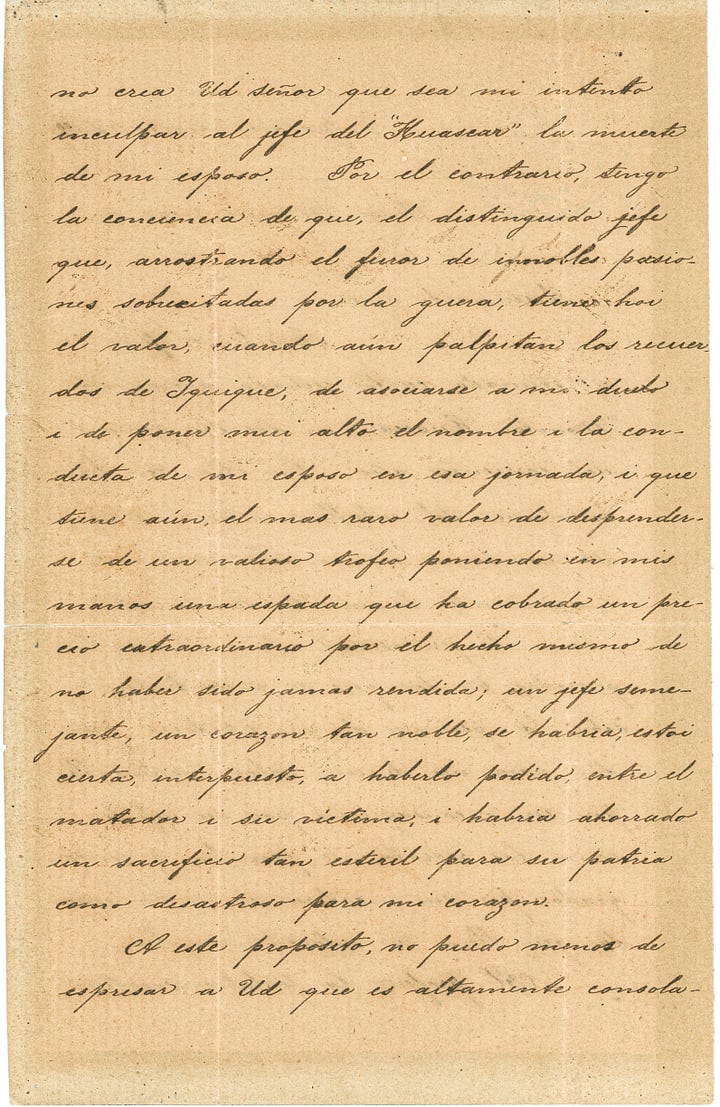 no crea Ud señor que sea mi intento
inculpar al jefe del "Huascar" la muerte
de mi esposo. Por el contrario, tengo
la conciencia de que, el distinguido jefe
que, arrostrando el furor de innobles pasio-
nes sobrecitadas por la guera, tiene hoi
el valor, cuando aún palpitan los recuer-
dos de Iquique, de asociarse a mi duelo
i de poner mui alto el nombre i la con-
ducta de mi esposo en esa jornada, i que
tiene aún, el mas raro valor de desprender-
se de un valioso trofeo poniendo en mis
manos una espada que ha cobrado un pre-
cio extraordinario por el hecho mismo de
no haber sido jamas rendida; un jefe seme-
jante, un corazon tan noble, se habria, estoi
cierta, interpuesto, a haberlo podido, entre el
matador i su víctima, i habria ahorrado
un sacrificio tan esteril para su patria
como desastroso para mi corazon.
A este propósito, no puedo menos de
espresar a Ud que es altamente consola-